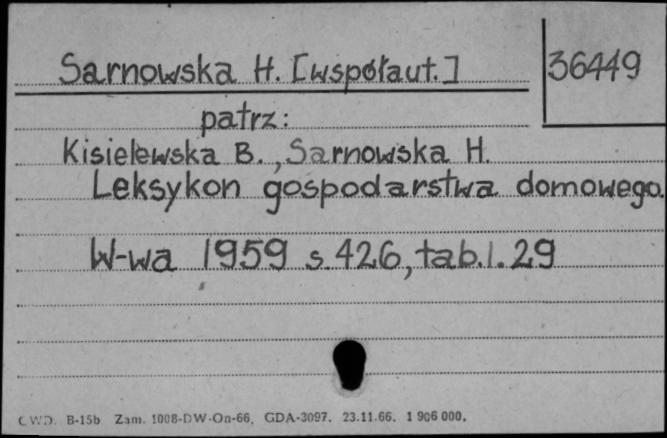 Sarnowska H. [współaut.]
36449
patrz:
Kisielewska B., Sarnowska H.
Leksykon gospodarstwa domowego.
W-wa 1959 s. 426, tab. l. 29
CWD. B-15b Zam. 1008-DW-On-66. GDA-3097. 23.11.66. 1 906 000.